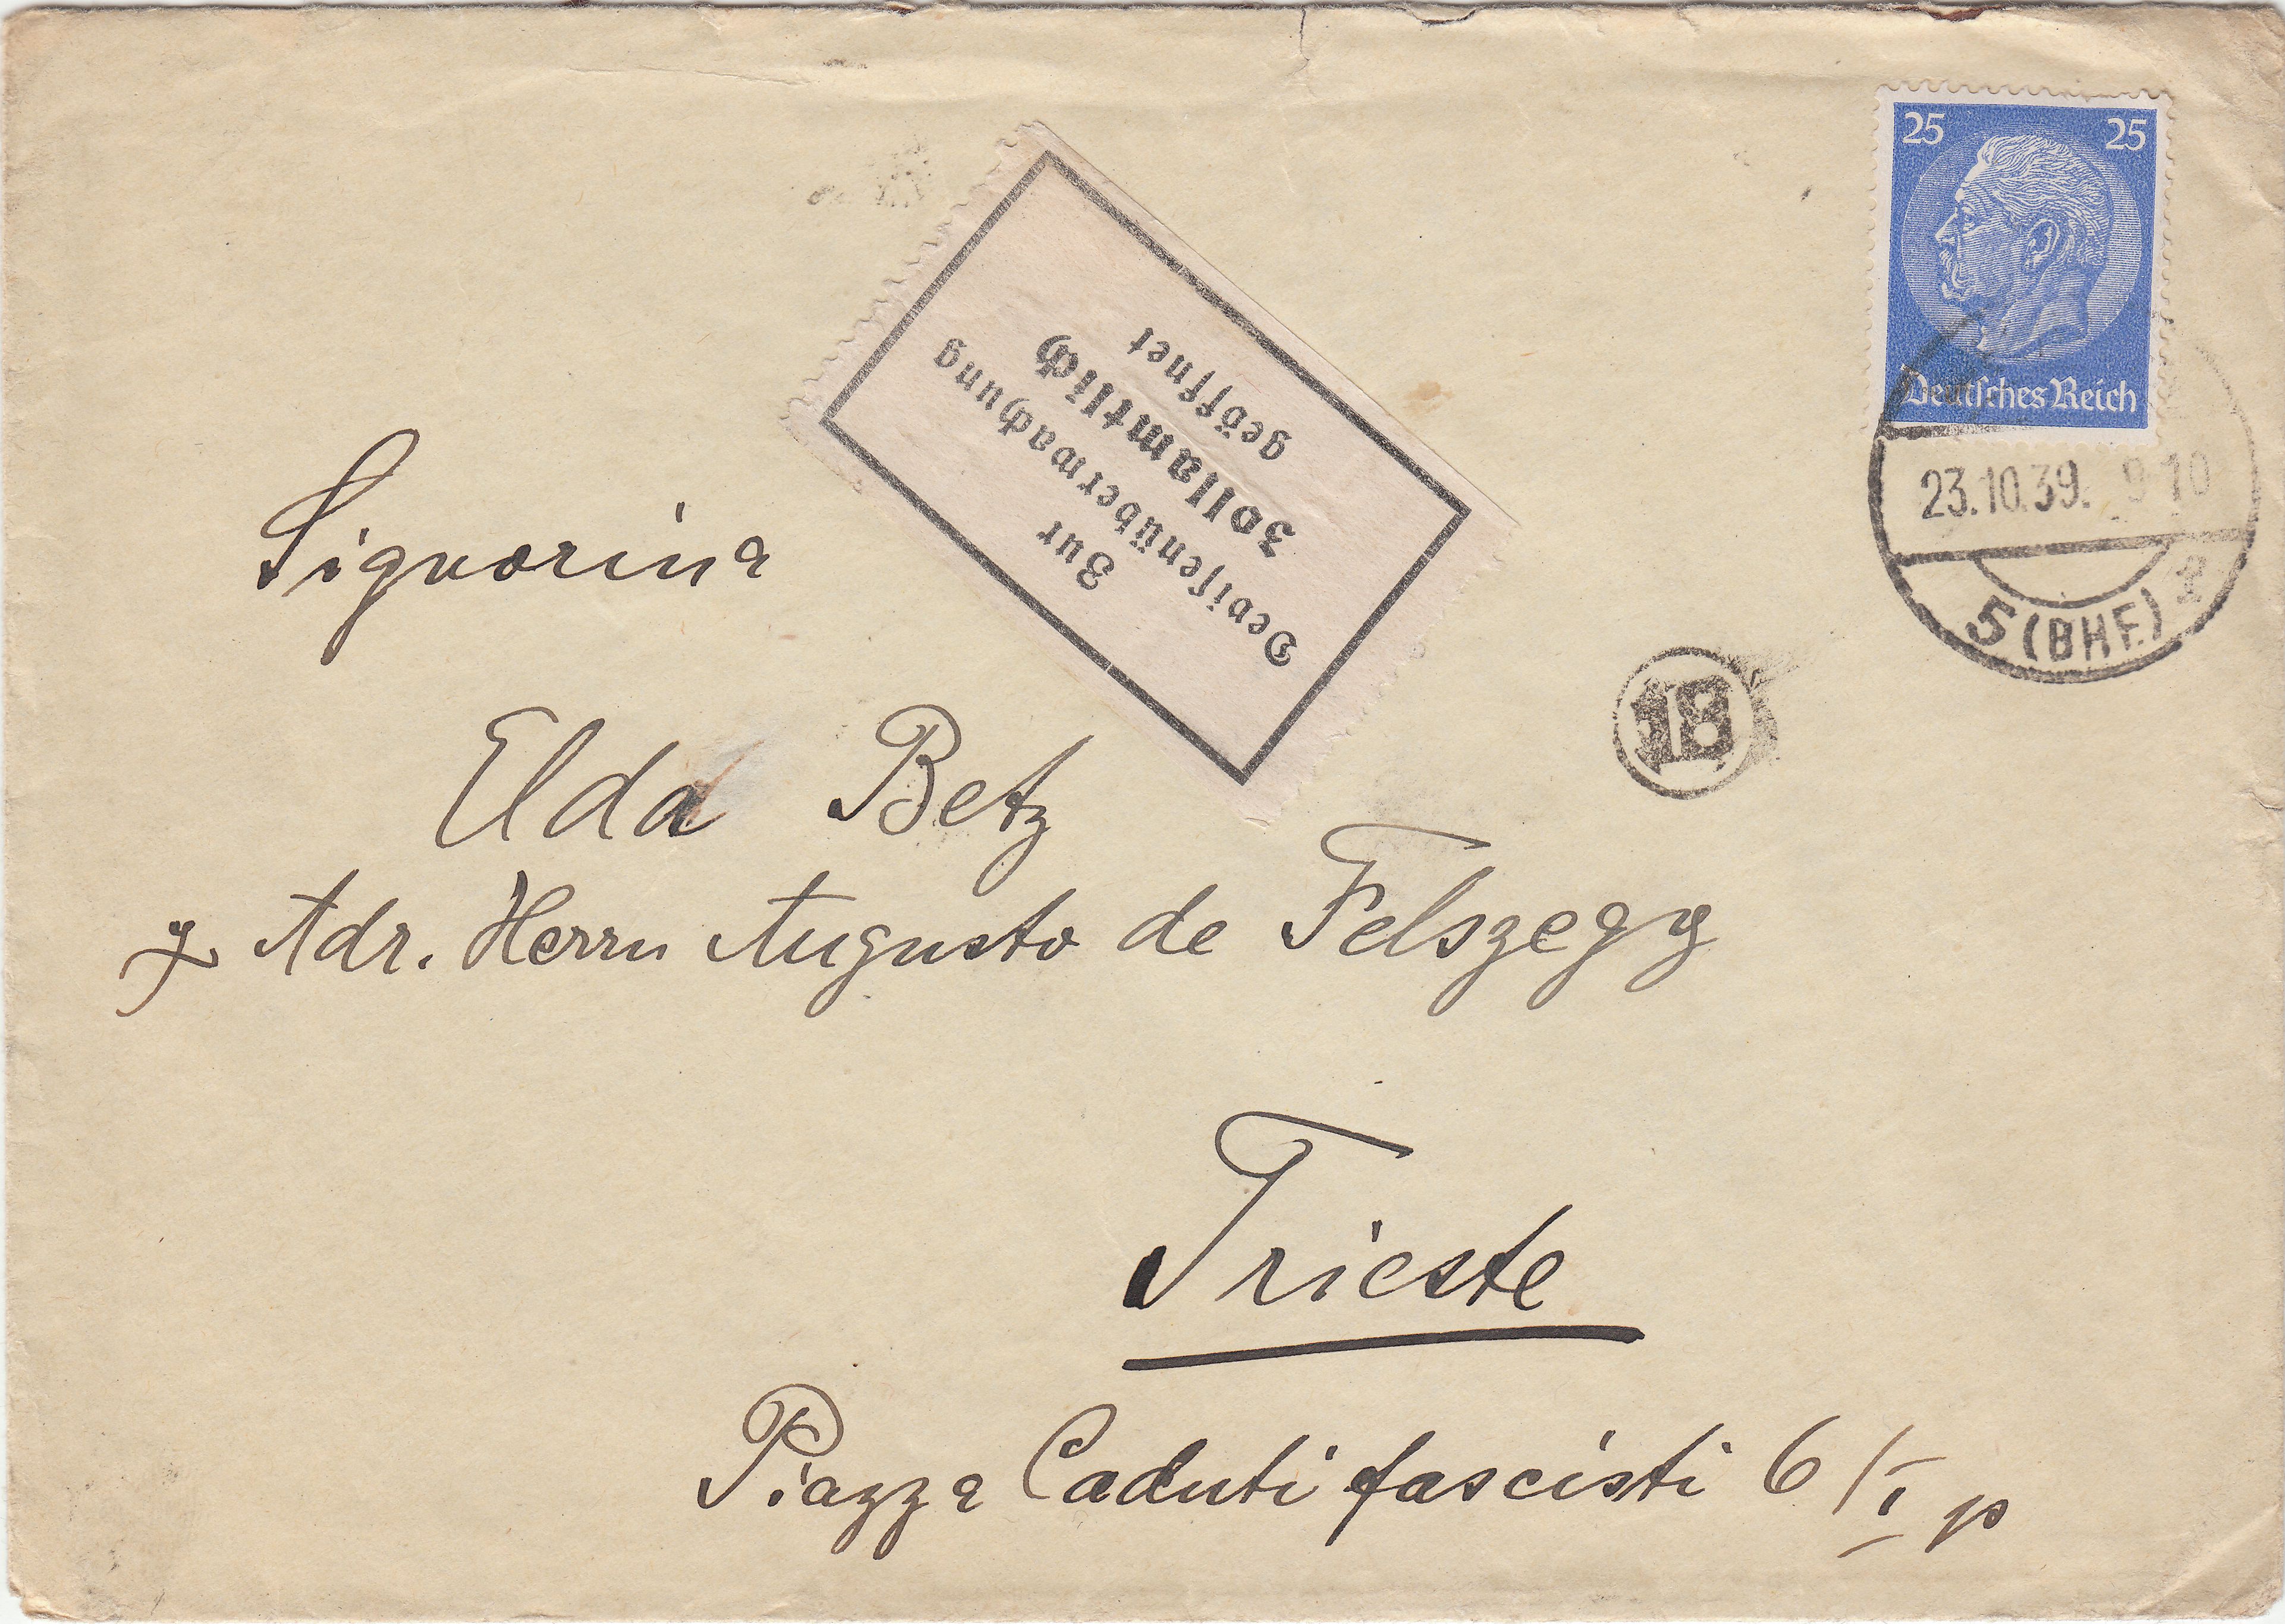 25 25
Deutsches Reich
23.10.39. 9 10
5 (BHF.)
Zur
Devisenüberwachung
zollamtlich
geöffnet
18
Signorina
Elda Betz
Adr. Herrn Augusto de Felszegy
Trieste
Piazza Caduti fascisti 6/I p